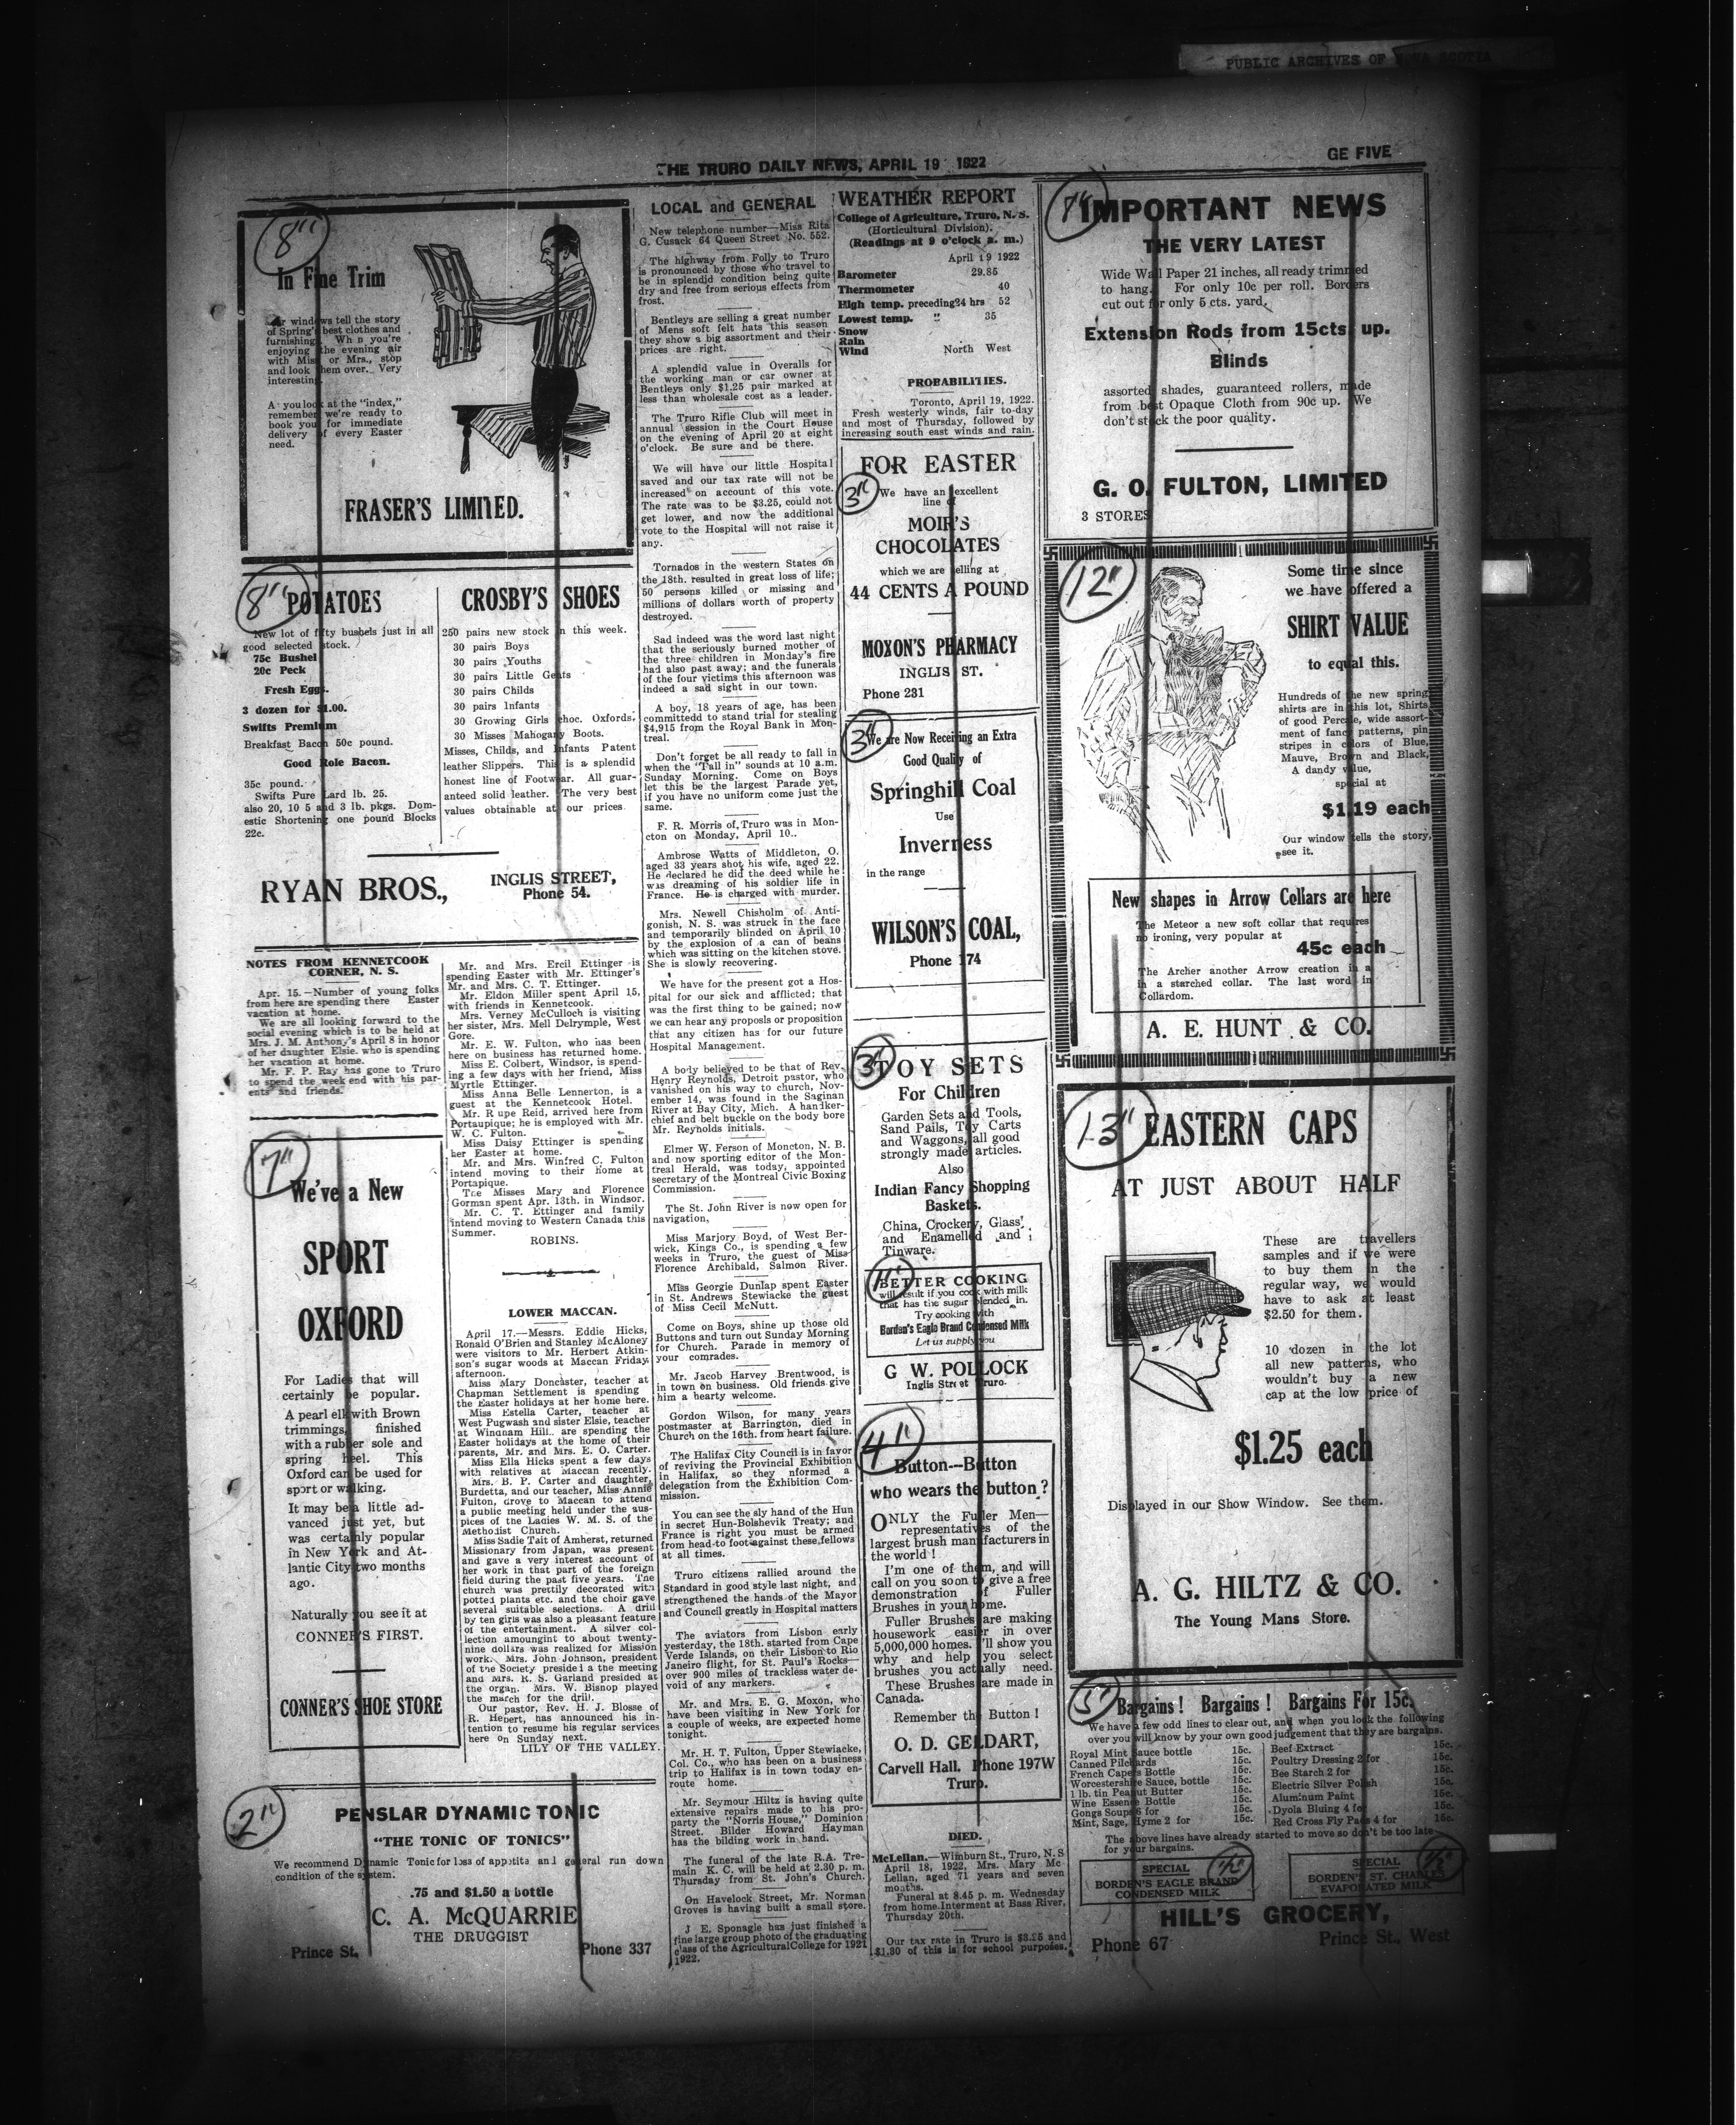 PUBLIC ARCHIVES OF NOVA SCOTIA
THE TRURO DAILY NEWS, APRIL 19 1922
GE FIVE
8"
In Fine Trim
windows tell the story
of Spring's best clothes and
furnishing. Wh n you're
enjoying the evening air
with Miss or Mrs., stop
and look them over. Very
interesting.
A you look at the "index,"
remember we're ready to
book you for immediate
delivery of every Easter
need.
FRASER'S LIMITED.
8"
POTATOES
New lot of fifty bushels just in all
good selected stock.
75c Bushel
20c Peck
Fresh Eggs.
3 dozen for $1.00.
Swifts Premium
Breakfast Bacon 50c pound.
Good Role Bacon.
35c pound.
Swifts Pure Lard lb. 25.
also 20, 10 5 and 3 lb. pkgs. Dom-
estic Shortening one pound Blocks
22c.
CROSBY'S SHOES
250 pairs new stock in this week.
30 pairs Boys
30 pairs Youths
30 pairs Little Gents
30 pairs Childs
30 pairs Infants
30 Growing Girls choc. Oxfords,
30 Misses Mahogany Boots.
Misses, Childs, and Infants Patent
leather Slippers. This is a splendid
honest line of Footwear. All guar-
anteed solid leather. The very best
values obtainable at our prices
RYAN BROS.,
INGLIS STREET,
Phone 54.
NOTES FROM KENNETCOOK
CORNER, N. S.
Apr. 15.—Number of young folks
from here are spending there Easter
vacation at home.
We are all looking forward to the
social evening which is to be held at
Mrs. J. M. Anthony's April 8 in honor
of her daughter Elsie. who is spending
her vacation at home.
Mr. F. P. Ray has gone to Truro
to spend the week end with his par-
ents and friends.
Mr. and Mrs. Ercil Ettinger is
spending Easter with Mr. Ettinger's
Mr. and Mrs. C. T. Ettinger.
Mr. Eldon Miller spent April 15,
with friends in Kennetcook.
Mrs. Verney McCulloch is visiting
her sister, Mrs. Mell Delrymple, West
Gore.
Mr. E. W. Fulton, who has been
here on business has returned home.
Miss E. Colbert, Windsor, is spend-
ing a few days with her friend, Miss
Myrtle Ettinger.
Miss Anna Belle Lennerton, is a
guest at the Kennetcook Hotel.
Mr. Rupe Reid, arrived here from
Portaupique; he is employed with Mr.
W. C. Fulton.
Miss Daisy Ettinger is spending
her Easter at home.
Mr. and Mrs. Winfred C. Fulton
intend moving to their home at
Portapique.
The Misses Mary and Florence
Gorman spent Apr. 13th. in Windsor.
Mr. C. T. Ettinger and family
intend moving to Western Canada this
Summer.
ROBINS.
7"
We've a New
SPORT
OXFORD
For Ladies that will
certainly be popular.
A pearl elk with Brown
trimmings, finished
with a rubber sole and
spring heel. This
Oxford can be used for
sport or walking.
It may be a little ad-
vanced just yet, but
was certainly popular
in New York and At-
lantic City two months
ago.
Naturally you see it at
CONNER'S FIRST.
CONNER'S SHOE STORE
LOWER MACCAN.
April 17.—Messrs. Eddie Hicks,
Ronald O'Brien and Stanley McAloney
were visitors to Mr. Herbert Atkin-
son's sugar woods at Maccan Friday
afternoon.
Miss Mary Doncaster, teacher at
Chapman Settlement is spending
the Easter holidays at her home here.
Miss Estella Carter, teacher at
West Pugwash and sister Elsie, teacher
at Windham Hill.. are spending the
Easter holidays at the home of their
parents, Mr. and Mrs. E. O. Carter.
Miss Ella Hicks spent a few days
with relatives at Maccan recently.
Mrs. B. P. Carter and daughter,
Burdetta, and our teacher, Miss Annie
Fulton, drove to Maccan to attend
a public meeting held under the aus-
pices of the Ladies W. M. S. of the
Methodist Church.
Miss Sadie Tait of Amherst, returned
Missionary from Japan, was present
and gave a very interest account of
her work in that part of the foreign
field during the past five years. The
church was prettily decorated with
potted plants etc. and the choir gave
several suitable selections. A drill
by ten girls was also a pleasant feature
of the entertainment. A silver col-
lection amoungint to about twenty-
nine dollars was realized for Mission
work. Mrs. John Johnson, president
of the Society presided a the meeting
and Mrs. R. S. Garland presided at
the organ. Mrs. W. Bishop played
the march for the drill.
Our pastor, Rev. H. J. Blosse of
R. Hebert, has announced his in-
tention to resume his regular services
here on Sunday next.
LILY OF THE VALLEY.
2"
PENSLAR DYNAMIC TONIC
"THE TONIC OF TONICS"
We recommend Dynamic Tonic for loss of appetite and general run down
condition of the system.
.75 and $1.50 a bottle
C. A. McQUARRIE
THE DRUGGIST
Prince St.
Phone 337
LOCAL and GENERAL
New telephone number—Miss Rita
G. Cusack 64 Queen Street No. 552.
The highway from Folly to Truro
is pronounced by those who travel to
be in splendid condition being quite
dry and free from serious effects from
frost.
Bentleys are selling a great number
of Mens soft felt hats this season
they show a big assortment and their
prices are right.
A splendid value in Overalls for
the working man or car owner at
Bentleys only $1.25 pair marked at
less than wholesale cost as a leader.
The Truro Rifle Club will meet in
annual session in the Court House
on the evening of April 20 at eight
o'clock. Be sure and be there.
We will have our little Hospital
saved and our tax rate will not be
increased on account of this vote.
The rate was to be $3.25, could not
get lower, and now the additional
vote to the Hospital will not raise it
any.
Tornados in the western States on
the 18th. resulted in great loss of life;
50 persons killed or missing and
millions of dollars worth of property
destroyed.
Sad indeed was the word last night
that the seriously burned mother of
the three children in Monday's fire
had also past away; and the funerals
of the four victims this afternoon was
indeed a sad sight in our town.
A boy, 18 years of age, has been
committedd to stand trial for stealing
$4,915 from the Royal Bank in Mon-
treal.
Don't forget be all ready to fall in
when the "Fall in" sounds at 10 a.m.
Sunday Morning. Come on Boys
let this be the largest Parade yet,
if you have no uniform come just the
same.
F. R. Morris of Truro was in Mon-
cton on Monday, April 10..
Ambrose Watts of Middleton, O.
aged 33 years shot his wife, aged 22.
He declared he did the deed while he
was dreaming of his soldier life in
France. He is charged with murder.
Mrs. Newell Chisholm of Anti-
gonish, N. S. was struck in the face
and temporarily blinded on April 10
by the explosion of a can of beans
which was sitting on the kitchen stove.
She is slowly recovering.
We have for the present got a Hos-
pital for our sick and afflicted; that
was the first thing to be gained; now
we can hear any propols or proposition
that any citizen has for our future
Hospital Management.
A body believed to be that of Rev.
Henry Reynolds, Detroit pastor, who
vanished on his way to church, Nov-
ember 14, was found in the Saginan
River at Bay City, Mich. A handker-
chief and belt buckle on the body bore
Mr. Reynolds initials.
Elmer W. Ferson of Moncton, N. B.
and now sporting editor of the Mon-
treal Herald, was today, appointed
secretary of the Montreal Civic Boxing
Commission.
The St. John River is now open for
navigation,
Miss Marjory Boyd, of West Ber-
wick, Kings Co., is spending a few
weeks in Truro, the guest of Miss
Florence Archibald, Salmon River.
Miss Georgie Dunlap spent Easter
in St. Andrews Stewiacke the guest
of Miss Cecil McNutt.
Come on Boys, shine up those old
Buttons and turn out Sunday Morning
for Church. Parade in memory of
your comrades.
Mr. Jacob Harvey Brentwood, is
in town on business. Old friends give
him a hearty welcome.
Gordon Wilson, for many years
postmaster at Barrington, died in
Church on the 16th. from heart failure.
The Halifax City Council is in favor
of reviving the Provincial Exhibition
in Halifax, so they nformed a
delegation from the Exhibition Com-
mission.
You can see the sly hand of the Hun
in secret Hun-Bolshevik Treaty; and
France is right you must be armed
from head to foot against these fellows
at all times.
Truro citizens rallied around the
Standard in good style last night, and
strengthened the hands of the Mayor
and Council greatly in Hospital matters
The aviators from Lisbon early
yesterday, the 18th. started from Cape
Verde Islands, on their Lisbon to Rio
Janeiro flight, for St. Paul's Rocks—
over 900 miles of trackless water de-
void of any markers.
Mr. and Mrs. E. G. Moxon, who
have been visiting in New York for
a couple of weeks, are expected home
tonight.
Mr. H. T. Fulton, Upper Stewiacke,
Col. Co., who has been on a business
trip to Halifax is in town today en-
route home.
Mr. Seymour Hiltz is having quite
extensive repairs made to his pro-
party the "Norris House," Dominion
Street. Bilder Howard Hayman
has the bilding work in hand.
The funeral of the late R.A. Tre-
main K. C. will be held at 2.30 p. m.
Thursday from St. John's Church.
On Havelock Street, Mr. Norman
Groves is having built a small store.
J E. Sponagle has just finished a
fine large group photo of the graduating
class of the Agricultural College for 1921
1922.
WEATHER REPORT
College of Agriculture, Truro, N. S.
(Horticultural Division).
(Readings at 9 o'clock a. m.)
April 19 1922
Barometer 29.85
Thermometer 40
High temp. preceding 24 hrs 52
Lowest temp. " 35
Snow
Rain
Wind North West
PROBABILITIES.
Toronto, April 19, 1922.
Fresh westerly winds, fair to-day
and most of Thursday, followed by
increasing south east winds and rain.
FOR EASTER
3"
We have an excellent
line of
MOIR'S
CHOCOLATES
which we are selling at
44 CENTS A POUND
MOXON'S PHARMACY
INGLIS ST.
Phone 231
3"
We are Now Receiving an Extra
Good Quality of
Springhill Coal
Use
Inverness
in the range
WILSON'S COAL,
Phone 174
3"
TOY SETS
For Children
Garden Sets and Tools,
Sand Pails, Toy Carts
and Waggons, all good
strongly made articles.
Also
Indian Fancy Shopping
Baskets.
China, Crockery, Glass
and Enamelled and
Tinware.
BETTER COOKING
will result if you cook with milk
that has the sugar blended in.
Try cooking with
Borden's Eagle Brand Condensed Milk
Let us supply you
G W. POLLOCK
Inglis Street Truro.
4"
Button---Button
who wears the button?
ONLY the Fuller Men—
representatives of the
largest brush manufacturers in
the world!
I'm one of them, and will
call on you soon to give a free
demonstration of Fuller
Brushes in your home.
Fuller Brushes are making
housework easier in over
5,000,000 homes. I'll show you
why and help you select
brushes you actually need.
These Brushes are made in
Canada.
Remember the Button!
O. D. GELDART,
Carvell Hall. Phone 197W
Truro.
DIED.
McLellan.—Wimburn St., Truro, N. S
April 18, 1922, Mrs. Mary Mc-
Lellan, aged 71 years and seven
months.
Funeral at 8.45 p. m. Wednesday
from home. Interment at Bass River,
Thursday 20th.
Our tax rate in Truro is $3.25 and
$1.30 of this is for school purposes.
IMPORTANT NEWS
THE VERY LATEST
Wide Wall Paper 21 inches, all ready trimmed
to hang. For only 10c per roll. Borders
cut out for only 5 cts. yard.
Extension Rods from 15cts up.
Blinds
assorted shades, guaranteed rollers, made
from best Opaque Cloth from 90c up. We
don't stock the poor quality.
G. O. FULTON, LIMITED
3 STORES
12"
Some time since
we have offered a
SHIRT VALUE
to equal this.
Hundreds of the new spring
shirts are in this lot, Shirts
of good Percale, wide assort-
ment of fancy patterns, pin
stripes in colors of Blue,
Mauve, Brown and Black,
A dandy value,
special at
$1.19 each
Our window tells the story,
see it.
New shapes in Arrow Collars are here
The Meteor a new soft collar that requires
no ironing, very popular at
45c each
The Archer another Arrow creation in a
in a starched collar. The last word in
Collardom.
A. E. HUNT & CO.
13"
EASTERN CAPS
AT JUST ABOUT HALF
These are travellers
samples and if we were
to buy them in the
regular way, we would
have to ask at least
$2.50 for them.
10 dozen in the lot
all new patterns, who
wouldn't buy a new
cap at the low price of
$1.25 each
Displayed in our Show Window. See them.
A. G. HILTZ & CO.
The Young Mans Store.
5"
Bargains! Bargains! Bargains For 15c.
We have a few odd lines to clear out, and when you look the following
over you will know by your own good judgement that they are bargains.
Royal Mint Sauce bottle 15c.
Canned Pilchards 15c.
French Capers Bottle 15c.
Worcestershire Sauce, bottle 15c.
1 lb. tin Peanut Butter 15c.
Wine Essence Bottle 15c.
Gongs Soups 6 for 15c.
Mint, Sage, Hyme 2 for 15c.
Beef Extract 15c.
Poultry Dressing 2 for 15c.
Bee Starch 2 for 15c.
Electric Silver Polish 15c.
Aluminum Paint 15c.
Dyola Bluing 4 for 15c.
Red Cross Fly Pads 4 for 15c.
The above lines have already started to move so don't be too late
for your bargains.
SPECIAL
BORDEN'S EAGLE BRAND
CONDENSED MILK
SPECIAL
BORDEN'S ST. CHARLES
EVAPORATED MILK
HILL'S GROCERY,
Phone 67
Prince St., West